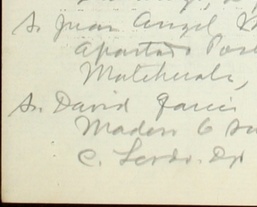 Sr. Juan Angel
Apartado Pos
Matehuala,
Sr. David Garci
Madero 6 su
C. Lerdo. Dgo